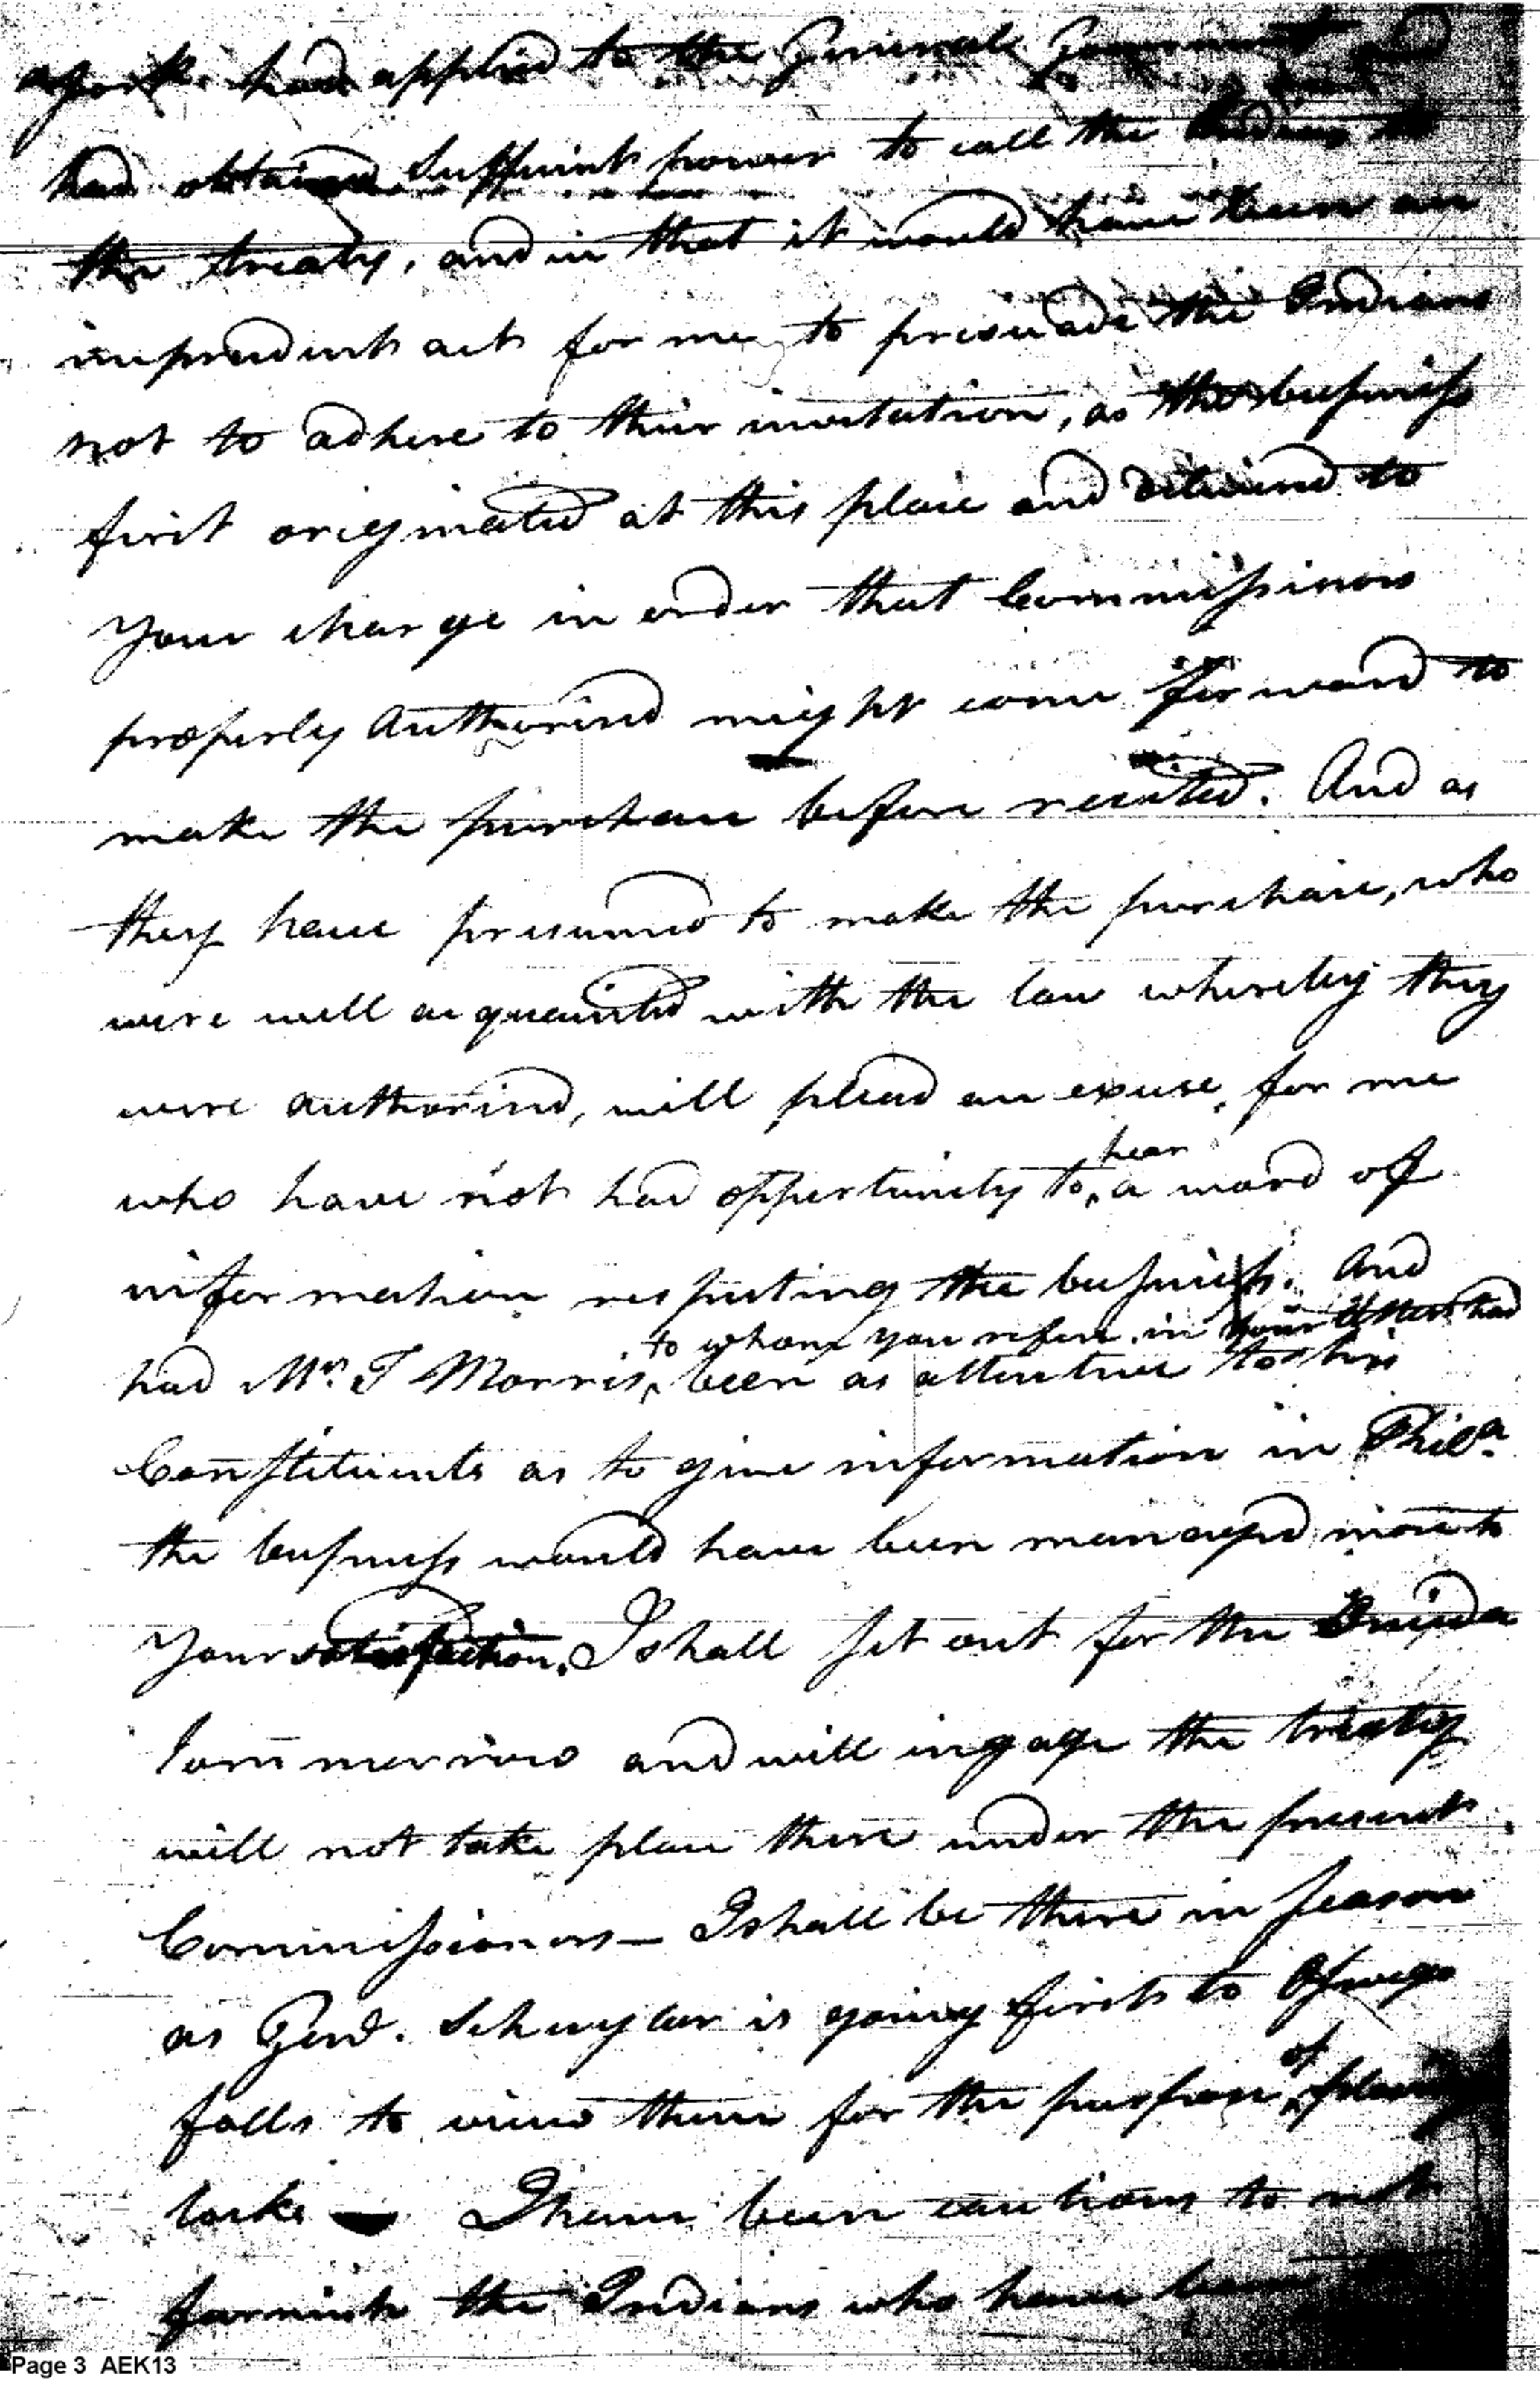 York had applied to the General Government and
had obtained sufficient power to call the Indians to
the treaty, and in that it would have been an
imprudent act for me to presuade the Indians
not to adhere to their invitation, as the business
first originated at this place and to
Your charge in order that Commissiners
properly Authorised might come forward to
make the purchase before recited. And as
they have presumed to make the purchase, who
were well acquainted with the law whereby they
were authorised, will plead an excuse, for me
who have not had oppertunity to hear a word of
information respecting the business. And
to whom you refere in your letter had
had Mr. T Morris, been as attentive to his
Constituents as to give information in Phila
the business would have been managed more to
Your satisfaction. I shall set out for the Oneida
Tommorrow and will ingage the treaty
will not take place there under the present
Commissioners — I shall be there in season
as Genl. Schuyler is going first to Oswego
falls to view them for the purpose of placing
locks — I have been cautious to not
furnish the Indians who have been
Page 3 AEK13